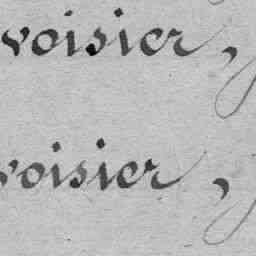 voisier,
voisier,